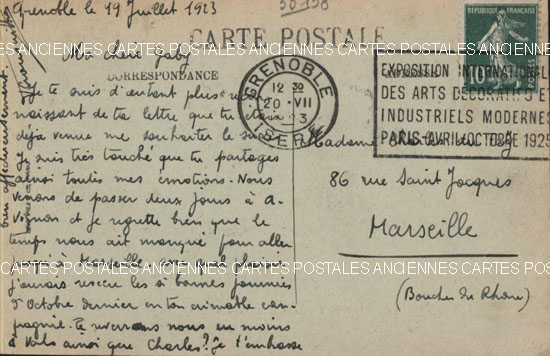 Grenoble le 19 Juillet 1923
50198
CARTE POSTALE
Ma chère Gaby
CORRESPONDANCE
Je te suis d'autant plus re
connaissant de ta lettre que tu étais
déjà venue me souhaiter le
Je suis très touché que tu partages
ainsi toutes mes émotions. Nous
venons de passer deux jours à A
vignon et je regrette bien que le
temps nous ait manqué pour aller
à Marseille
j'aurais revécu les si bonnes journées
d'Octobre dernier en ton aimable com
pagnie. Te verrons nous au moins
à Vals ainsi que Charles? Je t'embrasse
bien affectueusement
RÉPUBLIQUE FRANÇAISE
10
GRENOBLE
12 30
20 - VII
23
ISERE
EXPOSITION INTERNATIONALE
DES ARTS DECORATIFS ET
INDUSTRIELS MODERNES
PARIS-AVRIL-OCTOBRE 1925
Madame
86 rue Saint Jacques
Marseille
(Bouches du Rhône)
CARTES POSTALES ANCIENNES CARTES POSTALES ANCIENNES CARTES POSTALES ANCIENNES